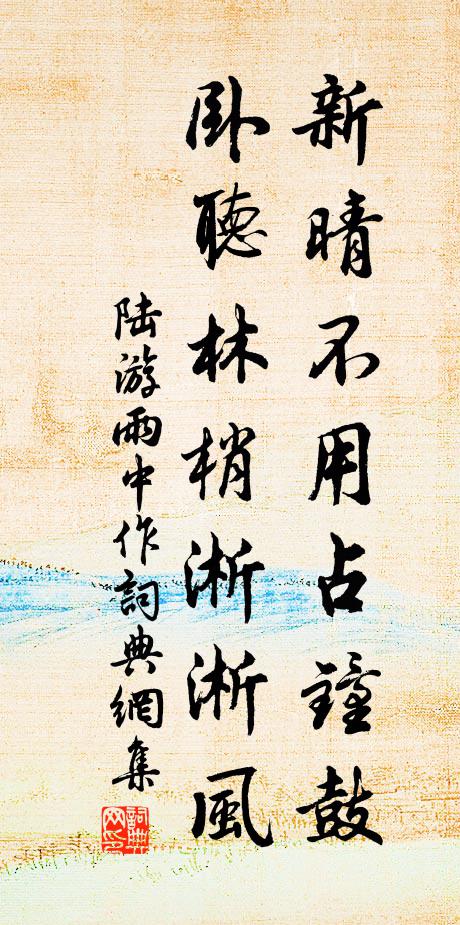 新晴不用占鐘鼓
卧聽林梢淅淅風
陆游雨中作詞典網集
詞典网印